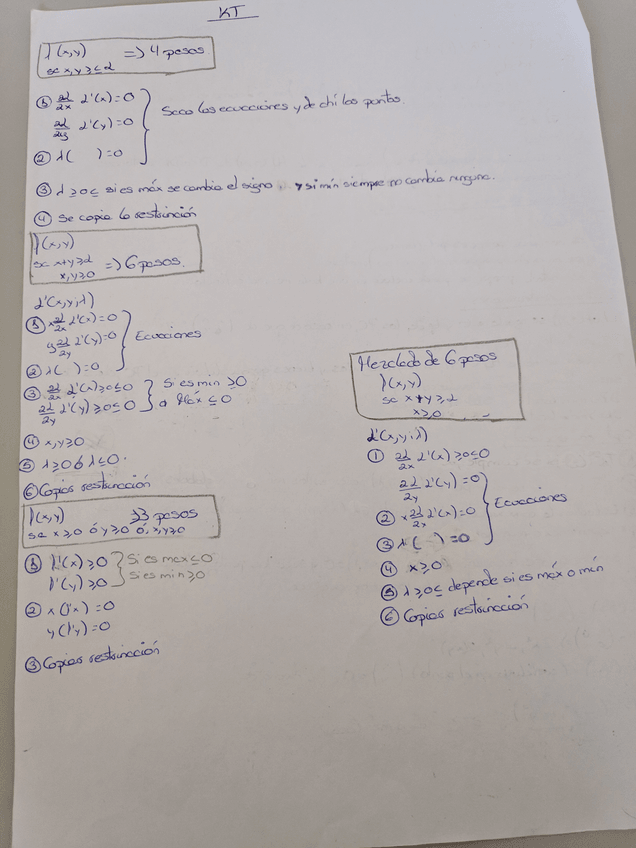 KT
f(x,y) => 4 pasos
sc x,y ≥ ≤ 2
① ∂L/∂x L'(x)=0
∂L/∂y L'(y)=0
Saco las ecuaciones y de ahí los puntos.
② λ( )=0
③ λ ≥ 0 ≤ si es máx se cambia el signo, y si mín siempre no cambia ninguno.
④ Se copia la restricción
f(x,y)
sc x+y≥2
x,y≥0 => 6 pasos.
L'(x,y,λ)
① x ∂L/∂x L'(x)=0
y ∂L/∂y L'(y)=0
Ecuaciones
② λ( )=0.
③ ∂L/∂x L'(x)≥0≤0 Si es min ≥0
∂L/∂y L'(y)≥0≤0 o Máx ≤0
④ x,y≥0
⑤ λ≥0 ó λ≤0.
⑥ Copias restricción
f(x,y) => 3 pasos
sc x≥0 ó y≥0 ó, x,y≥0
① f'(x)≥0 Si es max≤0
f'(y)≥0 si es min≥0
② x(f'x)=0
y(f'y)=0
③ Copias restricción
Mezclado de 6 pasos
f(x,y)
sc x+y≥2
x≥0
L'(x,y,λ)
① ∂L/∂x L'(x)≥0≤0
∂L/∂y L'(y)=0
② x ∂L/∂x L'(x)=0
Ecuaciones
③ λ( )=0
④ x≥0
⑤ λ≥0≤ depende si es máx o mín
⑥ Copias restricción